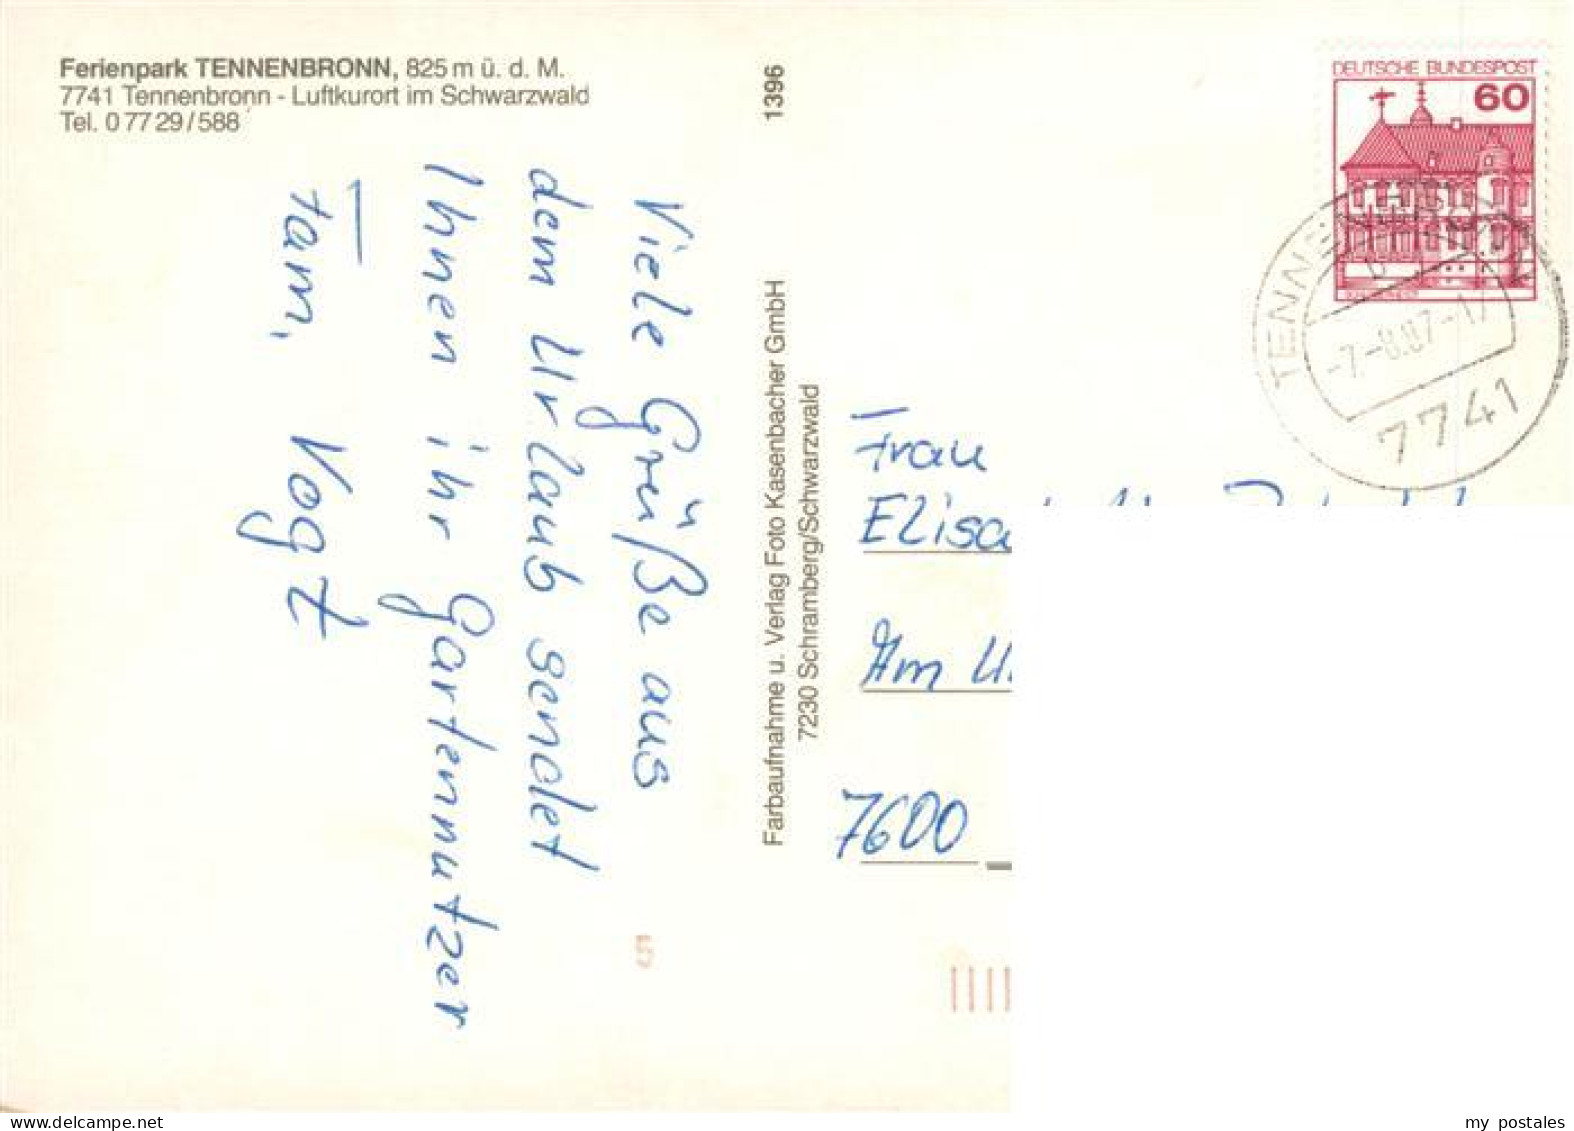 Ferienpark TENNENBRONN, 825 m ü. d. M.
7741 Tennenbronn - Luftkurort im Schwarzwald
Tel. 0 77 29 / 588
Viele Grüße aus
dem Urlaub sendet
Ihnen ihr Gartennutzer
Fam. Vogt
1396
Farbaufnahme u. Verlag Foto Kasenbacher GmbH
7230 Schramberg/Schwarzwald
DEUTSCHE BUNDESPOST
60
-7.-8.87-17
7741
Frau
Am
7600
5
my postales